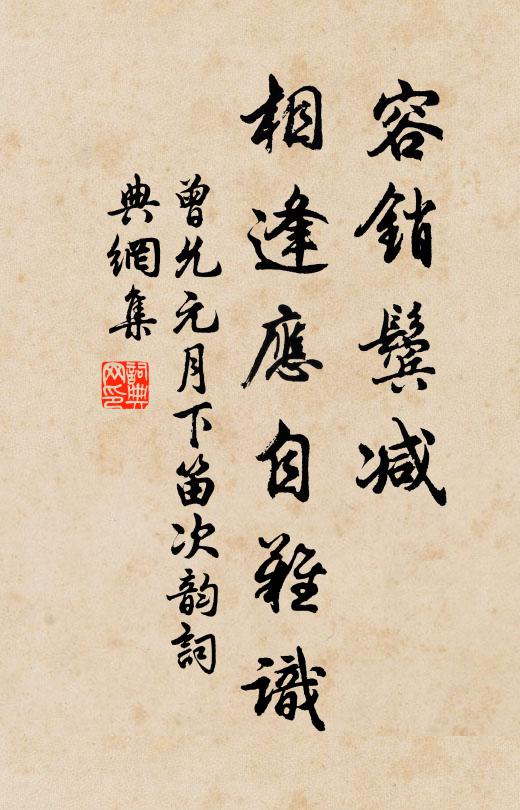 容銷鬢减
相逢應自難識
曾允元月下笛次韵詞
典網集
詞典
网印